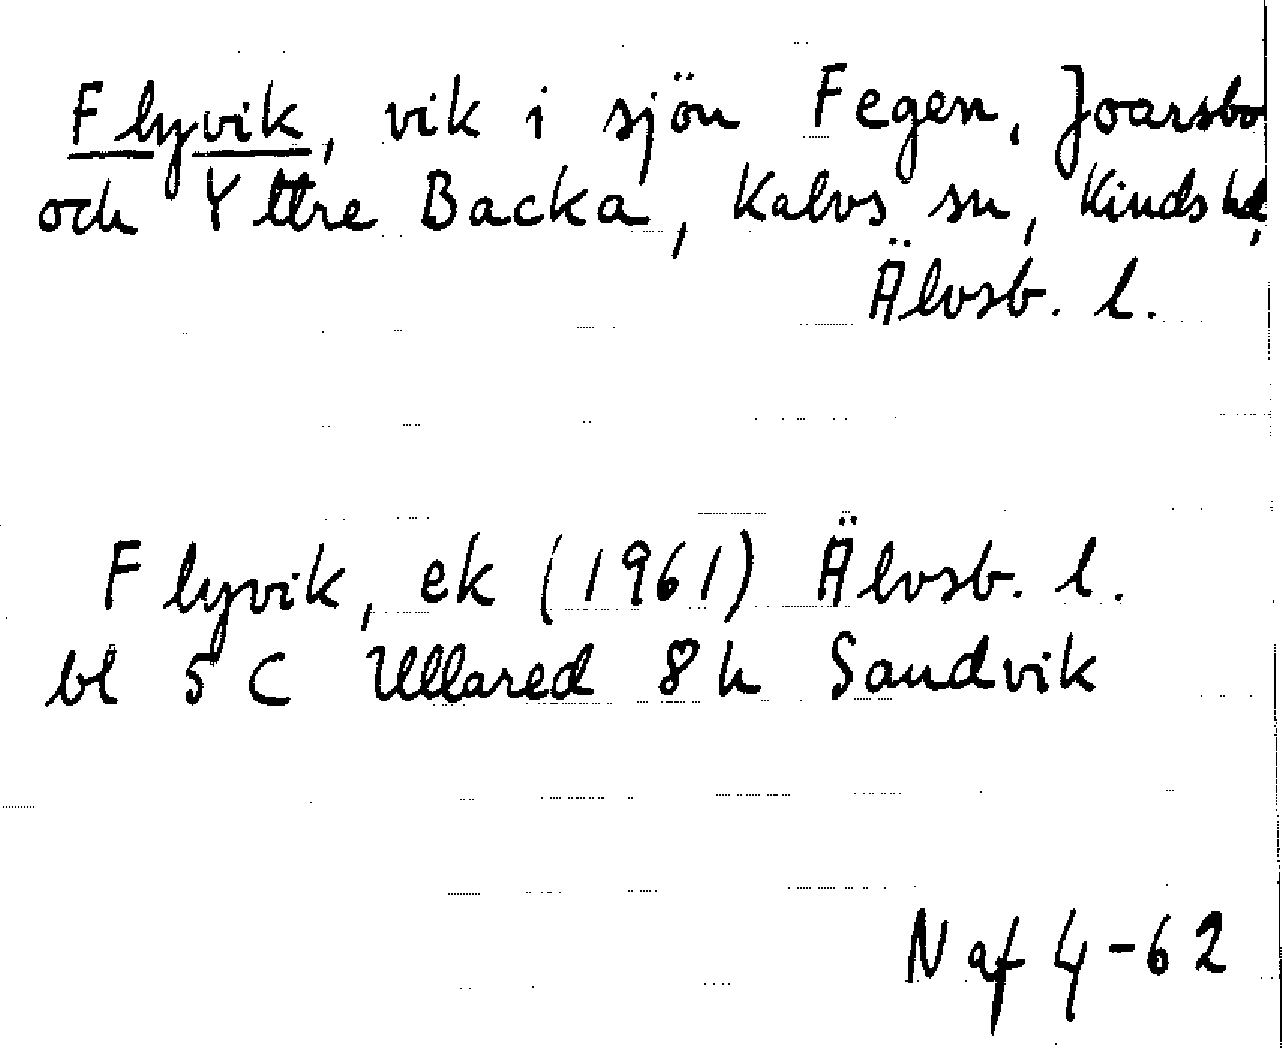 Flyvik, vik i sjön Fegen, Joarsbo
och Yttre Backa, Kalvs sn, Kinds hd,
Älvsb. l.
Flyvik, ek (1961) Älvsb. l.
bl 5 C Ullared 8 h Sandvik
N af 4-62